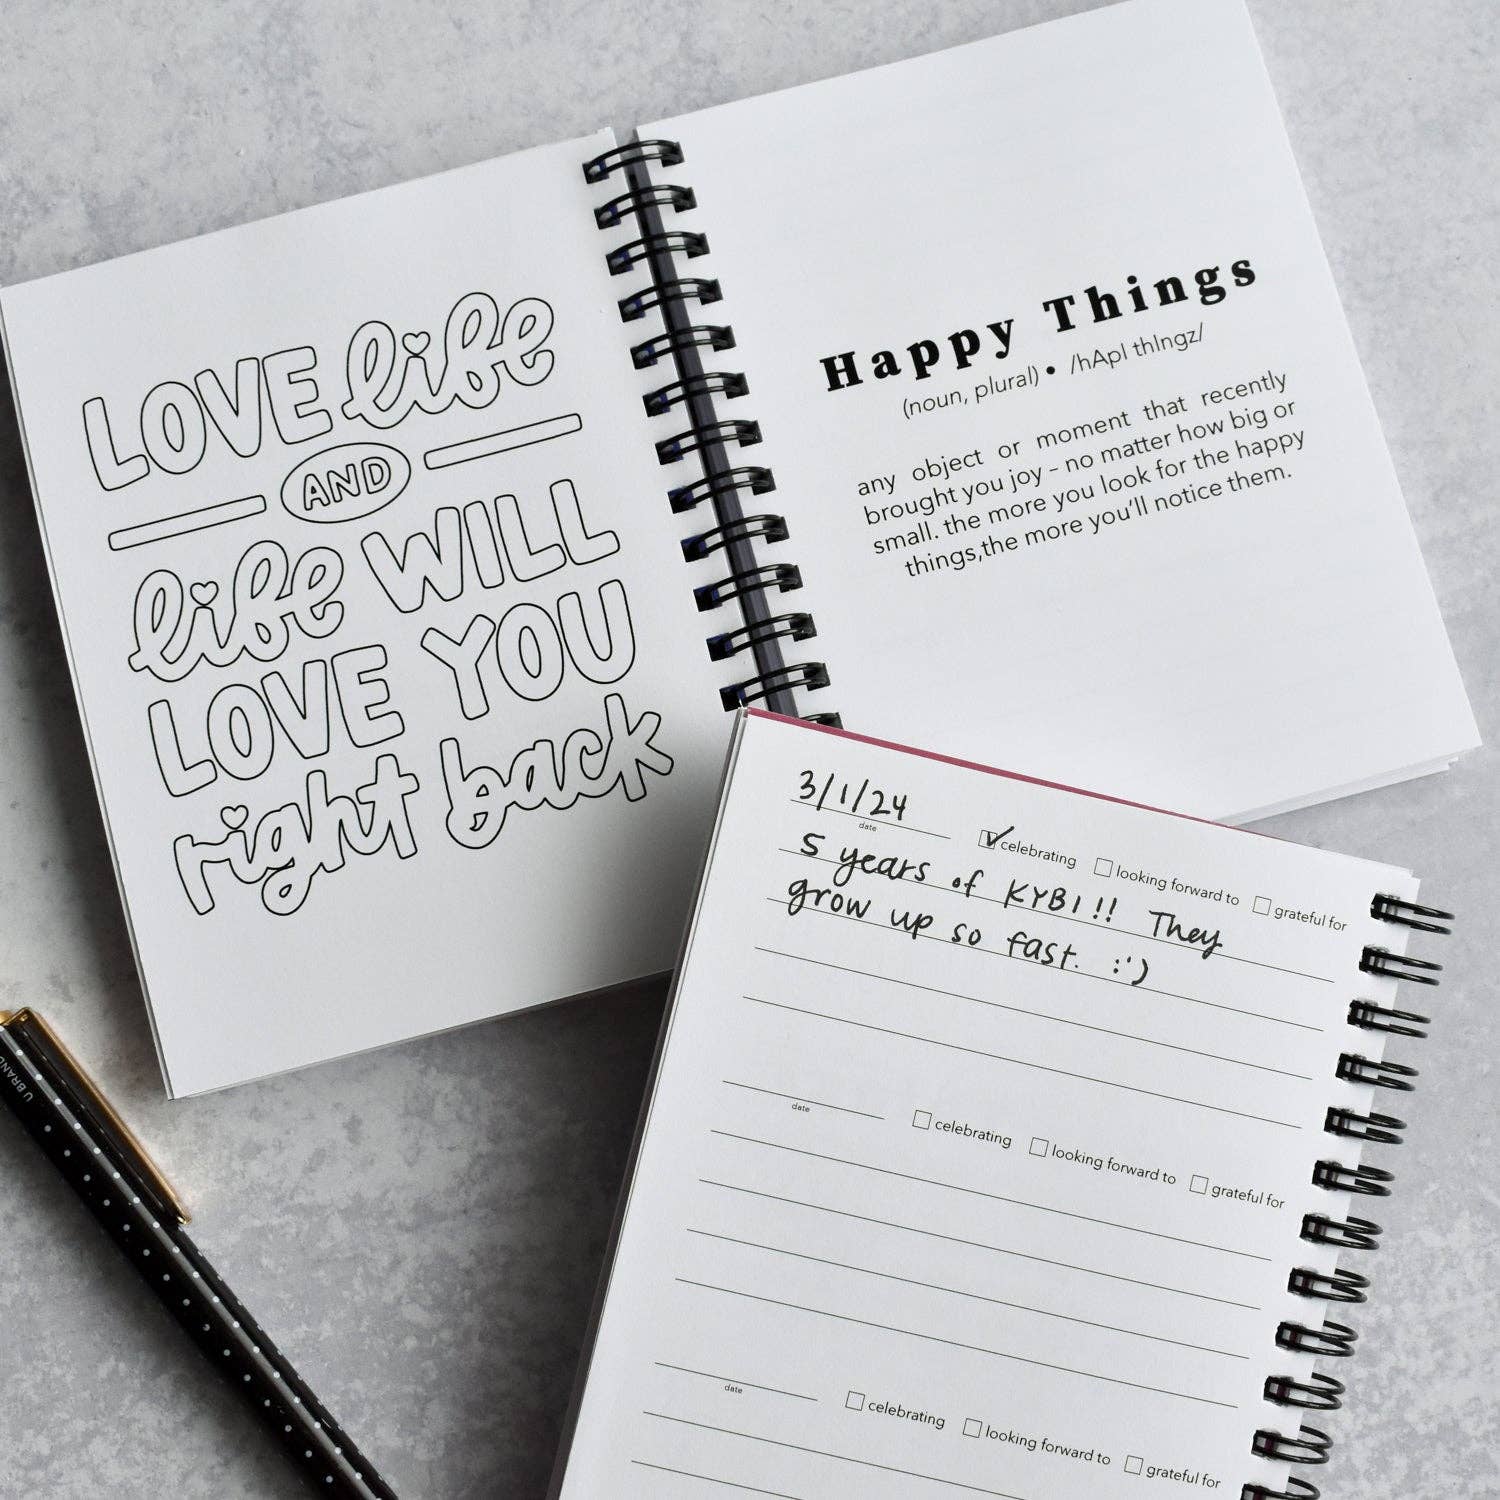 LOVE life
AND
life WILL
LOVE YOU
right back
Happy Things
(noun, plural) • /hApI thIngz/
any object or moment that recently
brought you joy - no matter how big or
small. the more you look for the happy
things,the more you'll notice them.
3/1/24
date
celebrating looking forward to grateful for
5 years of KYBI!! They
grow up so fast. :')
date
celebrating looking forward to grateful for
date
celebrating looking forward to grateful for
U BRAND